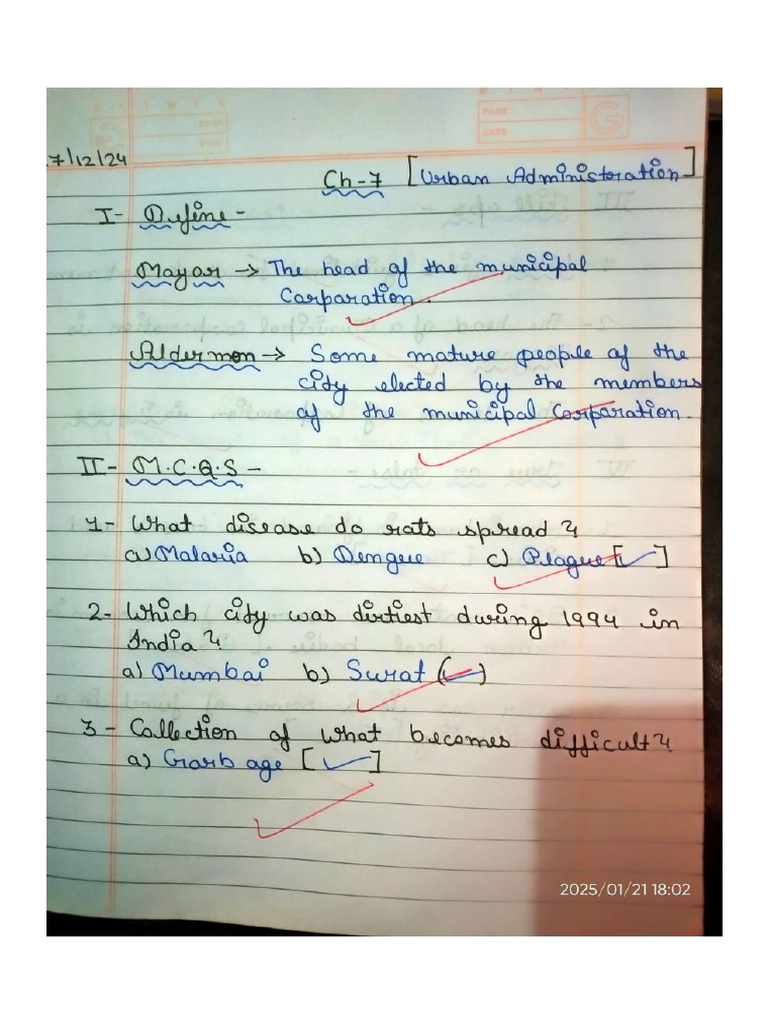 PAGE
DATE
7/12/24
Ch-7 [Urban Administration]
I- Define -
Mayar → The head of the municipal
Carparation.
Aldermen → Some mature people of the
city elected by the members
of the municipal Corparation.
II- M.C.Q.S -
1- What disease do rats spread?
a) Malaria b) Dengue c) Plague [✓]
2- Which city was dirtiest during 1994 in
India?
a) Mumbai b) Surat (✓)
3- Collection of what becomes difficult?
a) Garbage [✓]
2025/01/21 18:02